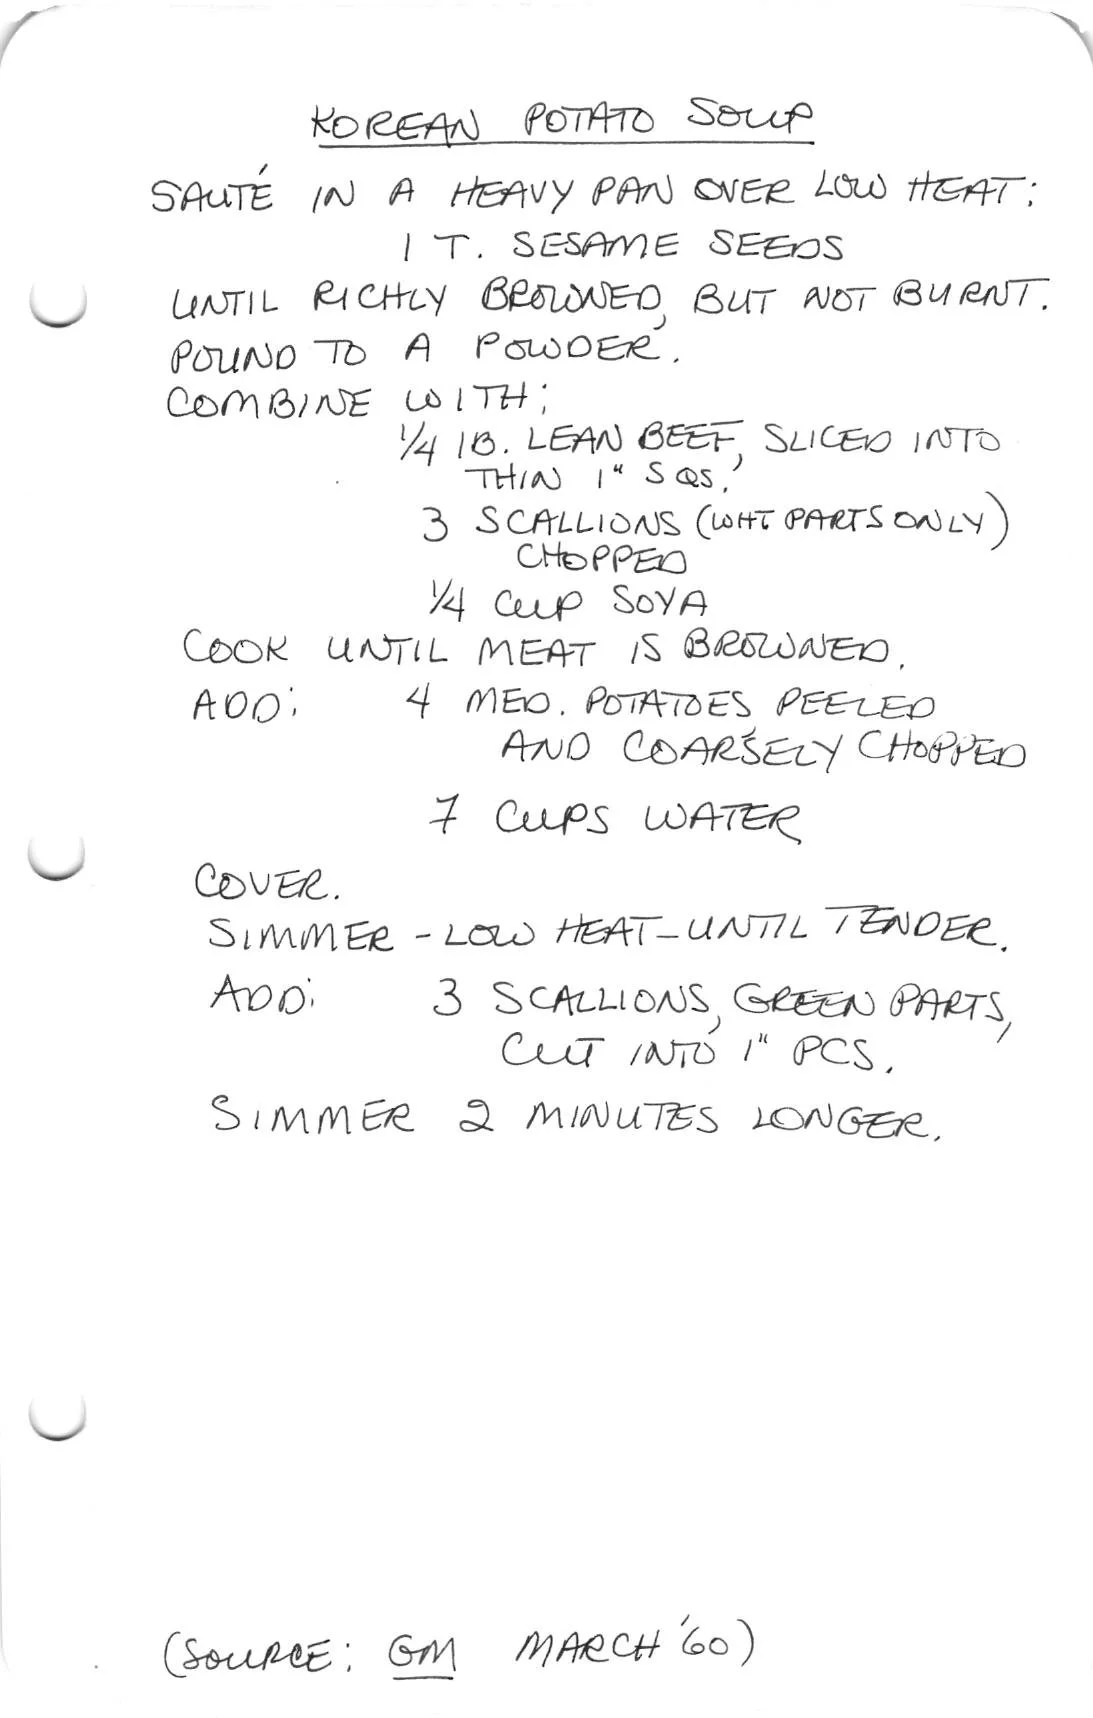 KOREAN POTATO SOUP
SAUTÉ IN A HEAVY PAN OVER LOW HEAT:
1 T. SESAME SEEDS
UNTIL RICHLY BROWNED, BUT NOT BURNT.
POUND TO A POWDER.
COMBINE WITH:
1/4 lB. LEAN BEEF, SLICED INTO
THIN 1" SQS.
3 SCALLIONS (WHT PARTS ONLY)
CHOPPED
1/4 CUP SOYA
COOK UNTIL MEAT IS BROWNED.
ADD: 4 MED. POTATOES, PEELED
AND COARSELY CHOPPED
7 CUPS WATER
COVER.
SIMMER - LOW HEAT - UNTIL TENDER.
ADD: 3 SCALLIONS, GREEN PARTS,
CUT INTO 1" PCS.
SIMMER 2 MINUTES LONGER.
(SOURCE: GM MARCH '60)